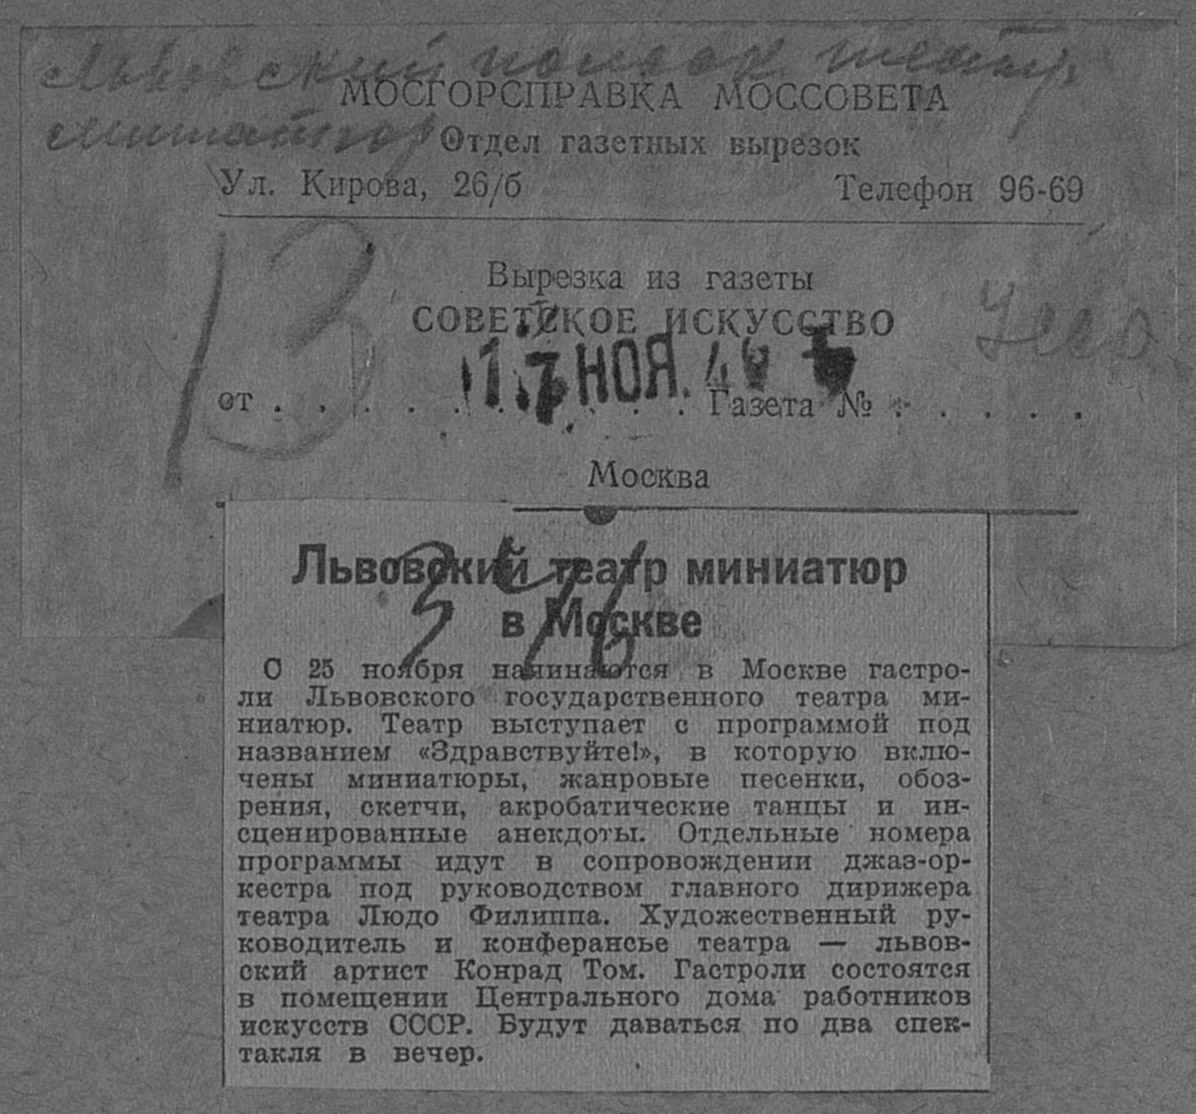 Львовский польск. театр
миниатюр
МОСГОРСПРАВКА МОССОВЕТА
Отдел газетных вырезок
Ул. Кирова, 26/б Телефон 96-69
Вырезка из газеты
СОВЕТСКОЕ ИСКУССТВО
от . . . . . . . . . . Газета № . . . . .
17 НОЯ. 40
Москва
Львовский театр миниатюр
в Москве
С 25 ноября начинаются в Москве гастро-
ли Львовского государственного театра ми-
ниатюр. Театр выступает с программой под
названием «Здравствуйте!», в которую вклю-
чены миниатюры, жанровые песенки, обоз-
рения, скетчи, акробатические танцы и ин-
сценированные анекдоты. Отдельные номера
программы идут в сопровождении джаз-ор-
кестра под руководством главного дирижера
театра Людо Филиппа. Художественный ру-
ководитель и конферансье театра — львов-
ский артист Конрад Том. Гастроли состоятся
в помещении Центрального дома работников
искусств СССР. Будут даваться по два спек-
такля в вечер.